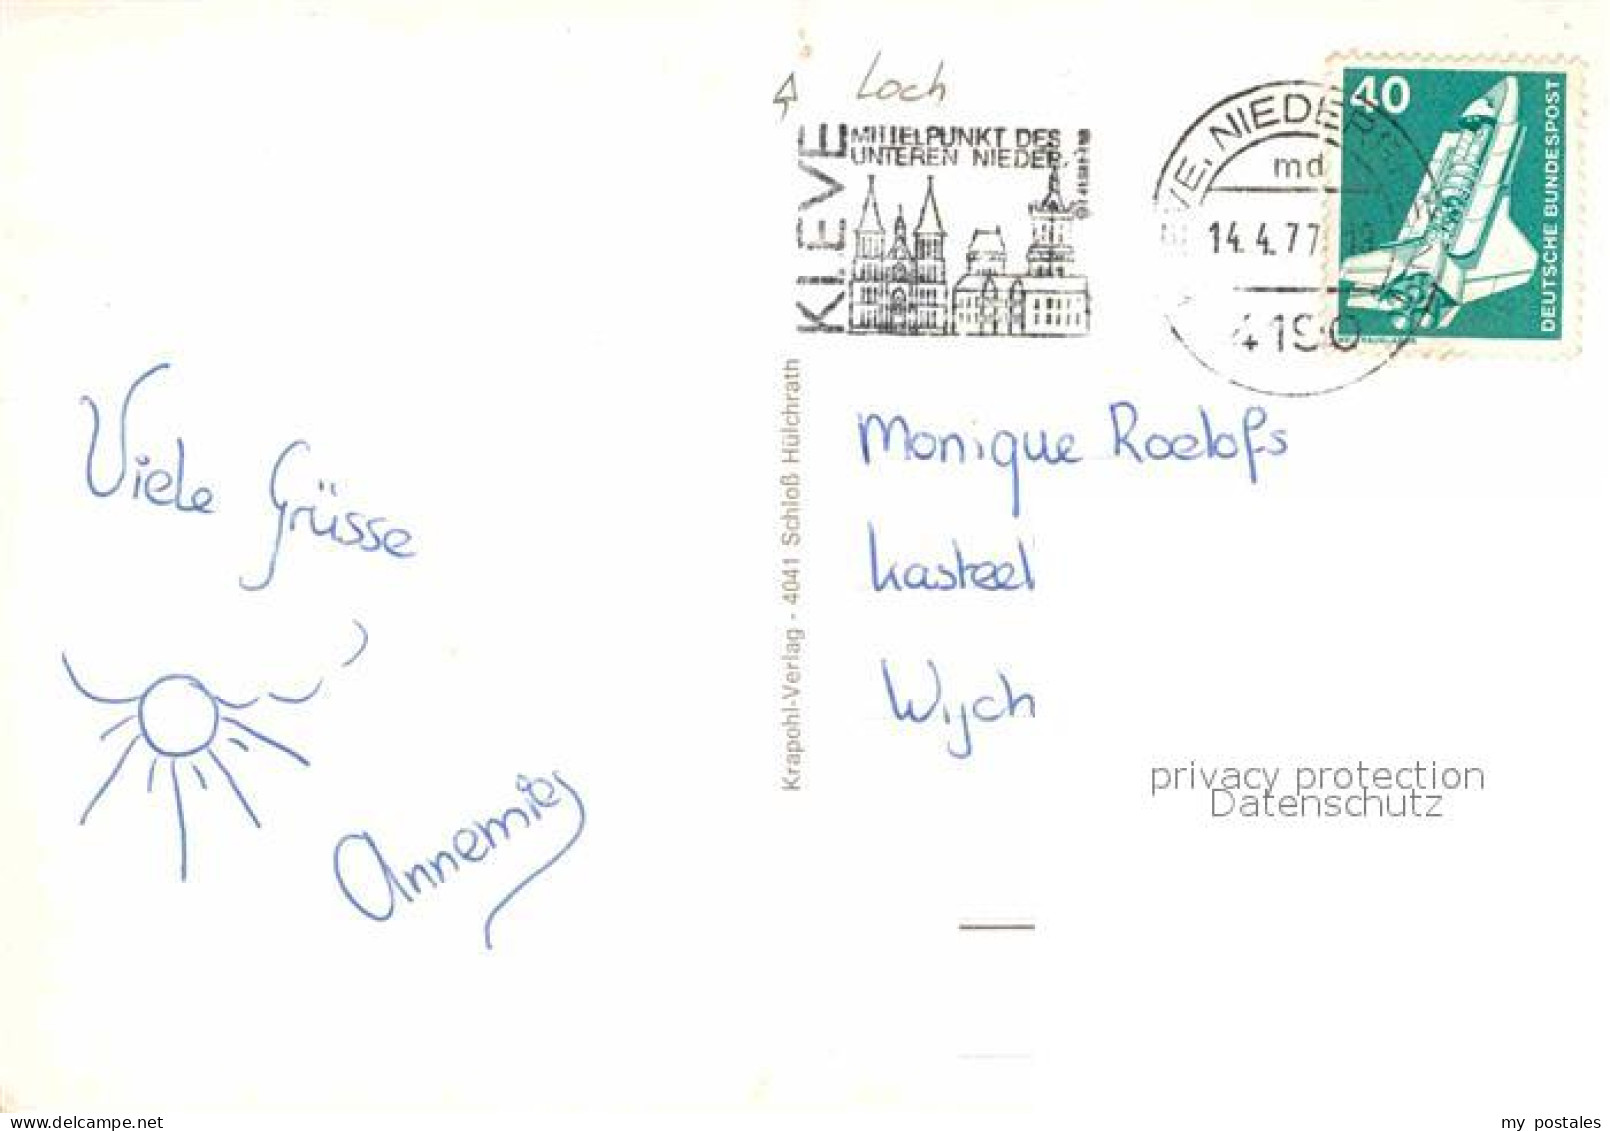 Loch
KLEVE
MITTELPUNKT DES
UNTEREN NIEDER.
NIEDER
md
14.4.77
4190
40
DEUTSCHE BUNDESPOST
Viele Grüsse
Annemies
Krapohl-Verlag - 4041 Schloß Hülchrath
Monique Roelofs
Kasteel
Wych
privacy protection
Datenschutz
www.delcampe.net
my_postales